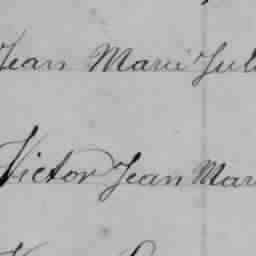 Jean Marie Jul
Victor Jean Mar